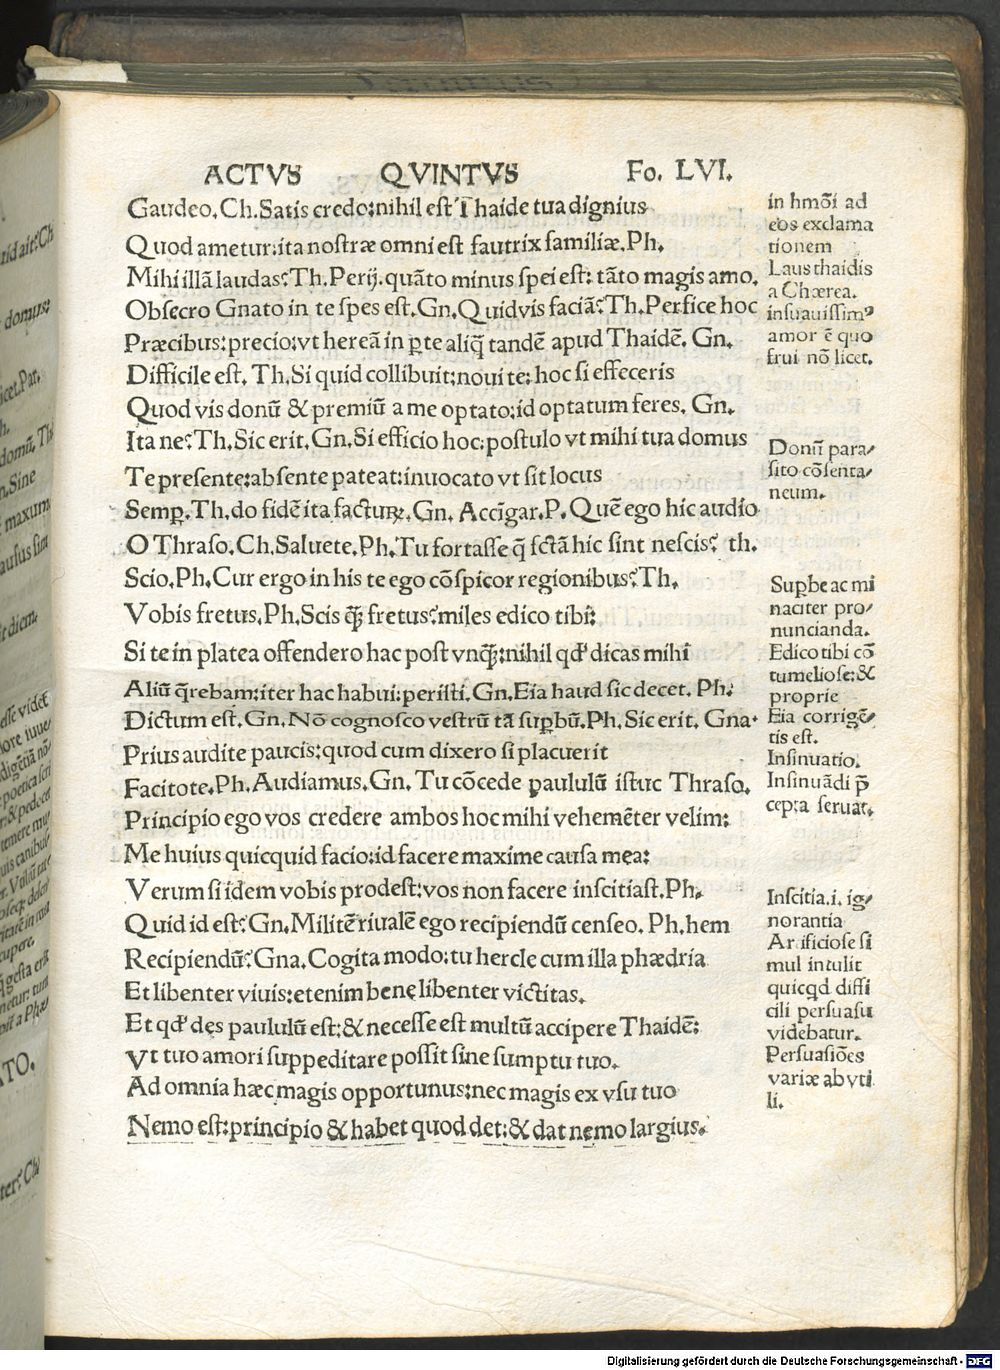 ACTVS QVINTVS Fo. LVI.
Gaudeo. Ch. Satis credo: nihil est Thaide tua dignius
Quod ametur: ita nostræ omni est fautrix familiæ. Ph.
Mihi illā laudas? Th. Perij. quāto minus spei est: tāto magis amo.
Obsecro Gnato in te spes est. Gn. Quidvis faciā? Th. Perfice hoc
Præcibus: precio: vt hereā in ꝑte aliq̄ tandē apud Thaidē. Gn.
Difficile est. Th. Si quid collibuit: noui te: hoc si effeceris
Quod vis donū & premiū a me optato: id optatum feres. Gn.
Ita ne? Th. Sic erit. Gn. Si efficio hoc: postulo vt mihi tua domus
Te presente: absente pateat: inuocato vt sit locus
Semꝑ. Th. do fidē ita facturꝝ. Gn. Accīgar. P. Quē ego hic audio
O Thraso. Ch. Saluete. Ph. Tu fortasse q̄ fctā hic sint nescis? th.
Scio. Ph. Cur ergo in his te ego cōspicor regionibus? Th.
Vobis fretus. Ph. Scis q̄ꝫ fretus? miles edico tibi:
Si te in platea offendero hac post vnq̄ꝫ: nihil qđ dicas mihi
Aliū q̄rebam: iter hac habui: peristi. Gn. Eia haud sic decet. Ph.
Dictum est. Gn. Nō cognosco vestrū tā suꝑbū. Ph. Sic erit. Gna.
Prius audite paucis: quod cum dixero si placuerit
Facitote. Ph. Audiamus. Gn. Tu cōcede paululū istuc Thraso.
Principio ego vos credere ambos hoc mihi vehemēter velim:
Me huius quicquid facio: id facere maxime causa mea:
Verum si idem vobis prodest: vos non facere inscitiast. Ph.
Quid id est? Gn. Militē riualē ego recipiendū censeo. Ph. hem
Recipiendū? Gna. Cogita modo: tu hercle cum illa phædria
Et libenter viuis: etenim benę libenter victitas.
Et qđ dęs paululū est: & necesse est multū accipere Thaidē:
Vt tuo amori suppeditare possit sine sumptu tuo.
Ad omnia hæc magis opportunus: nec magis ex vsu tuo
Nemo est: principio & habet quod det: & dat nemo largius.
in hmōi ad
eos exclama
tionem
Laus thaidis
a Chærea.
insuauissimꝰ
amor ē quo
frui nō licet.
Donū para/
sito cōsenta/
neum.
Suꝑbe ac mi
naciter pro/
nuncianda.
Edico tibi cō
tumeliose: &
proprie
Eia corrigē/
tis est.
Insinuatio.
Insinuādi p̄
cepta seruat.
Inscitia. i. ig/
norantia
Artificiose si
mul intulit
quicqd diffi
cili persuasu
videbatur.
Persuasiōes
variæ ab vti
li.
Digitalisierung gefördert durch die Deutsche Forschungsgemeinschaft - DFG